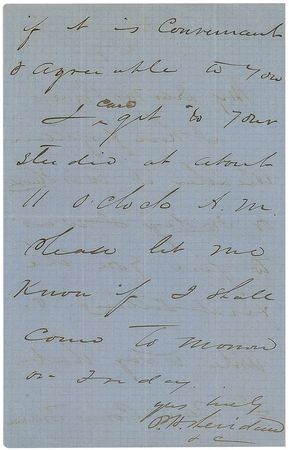 if it is Convenient
& agreeable to You
I can get to Your
studio at about
11 O.clock A M.
Please let me
Know if I shall
come to morrow
or Friday
yrs truly
P. H. Sheridan